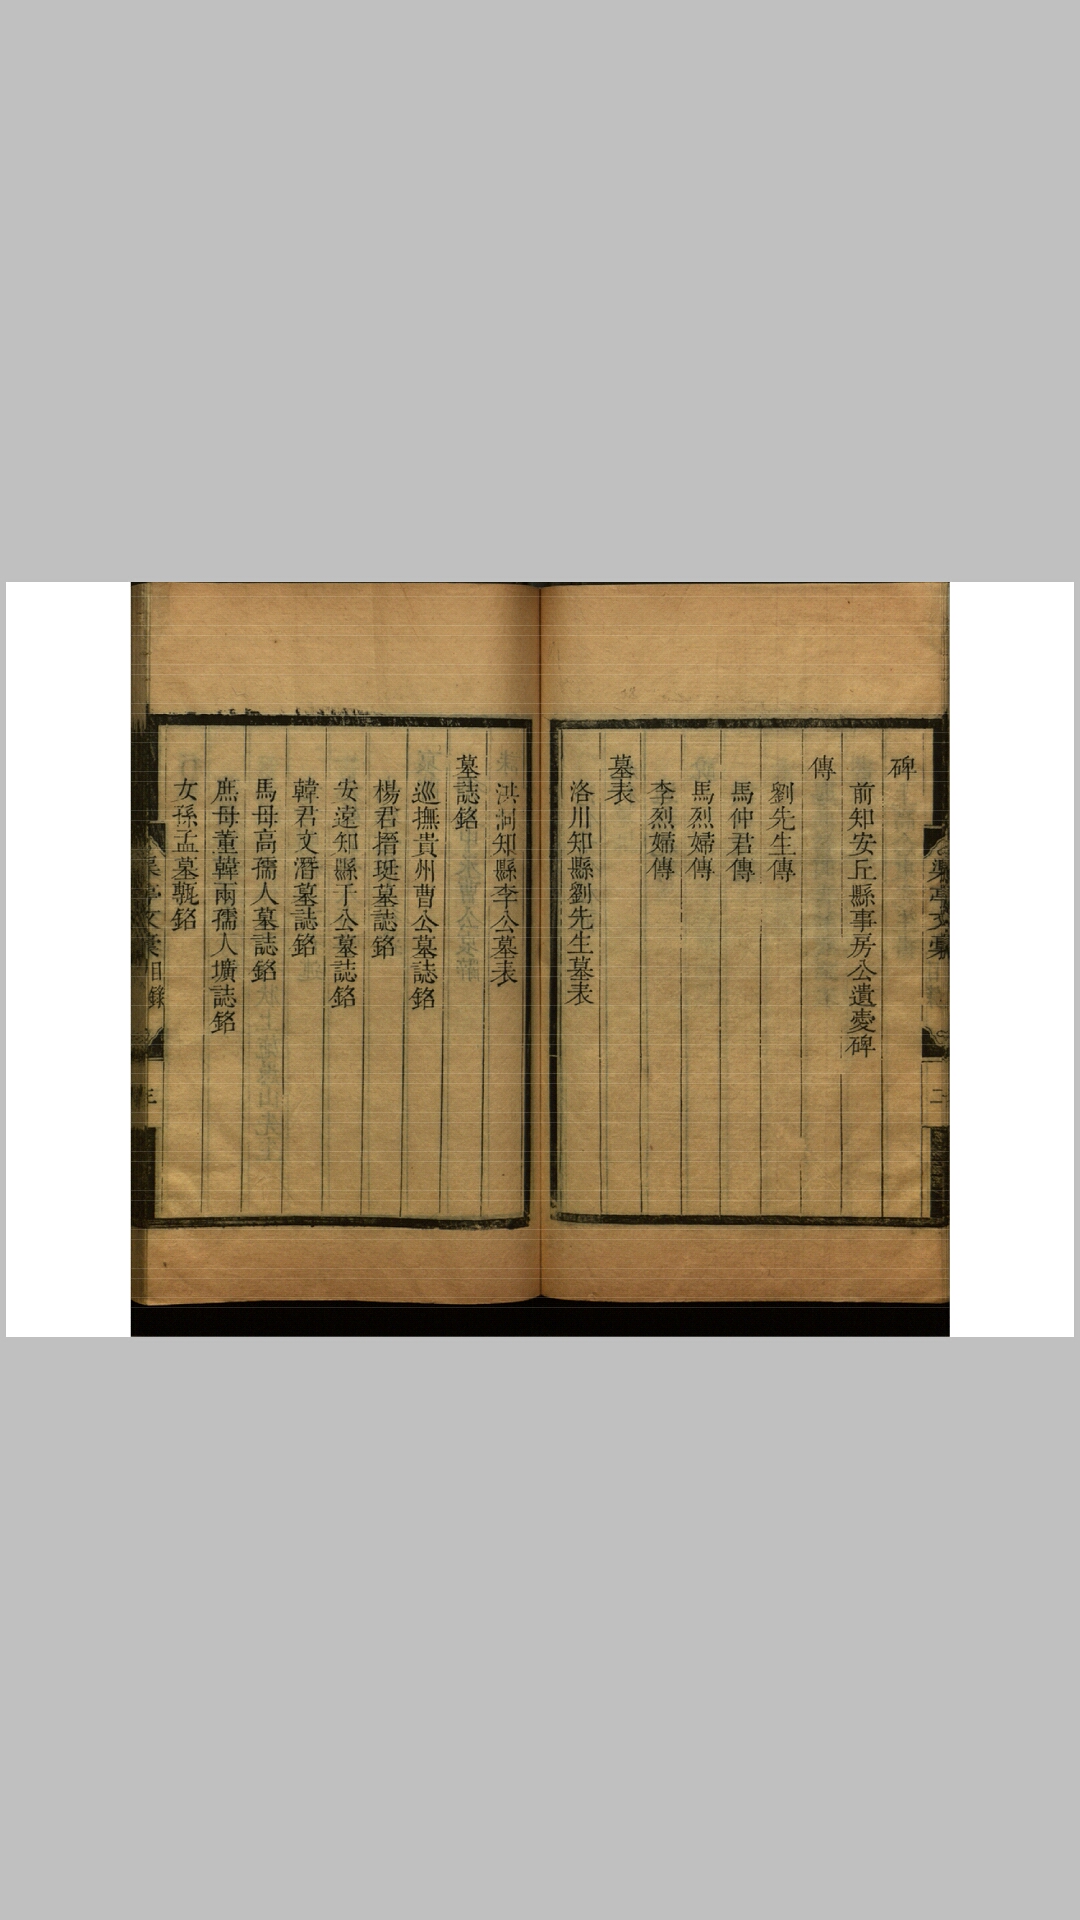 碑
前知安丘縣事房公遺愛碑
傳
劉先生傳
馬仲君傳
馬烈婦傳
李烈婦傳
墓表
洛川知縣劉先生墓表
洪洞知縣李公墓表
墓誌銘
巡撫貴州曹公墓誌銘
楊君搢珽墓誌銘
安遠知縣于公墓誌銘
韓君文潛墓誌銘
馬母高孺人墓誌銘
庶母董韓兩孺人壙誌銘
女孫孟墓甎銘
渠亭文稾
二
渠亭文稾目錄
三